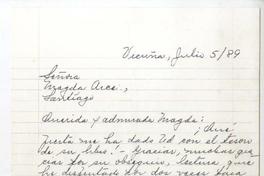 Vicuña, Julio 5/89
Señora
Magda Arce.,
Santiago
Querida y admirada Magda:
¡Qué
fiesta me ha dado Ud con el tesoro
de su libro! - Gracias, muchas gra
cias por su obsequio, lectura que
he disfrutado por dos veces para